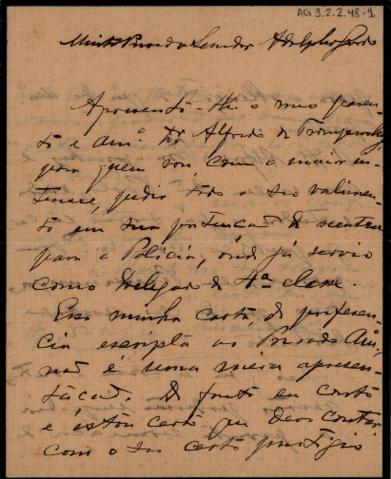 AG 3.2.2.48-1
Adolpho Gordo
Apresento-lhe o meu paren-
te e am.º Dr. Alfredo de
para quem vou, com o maior in-
teresse, pedir todo o seu valimen-
to em sua pretenção de reentrar
para a Policia, onde já serviu
como Delegado de 4ª classe.
Essa minha carta, de preferen-
cia escripta ao Am.º,
não é uma mera apresen-
tação. De facto eu conto
e estou certo que devo contar
com o seu certo prestigio